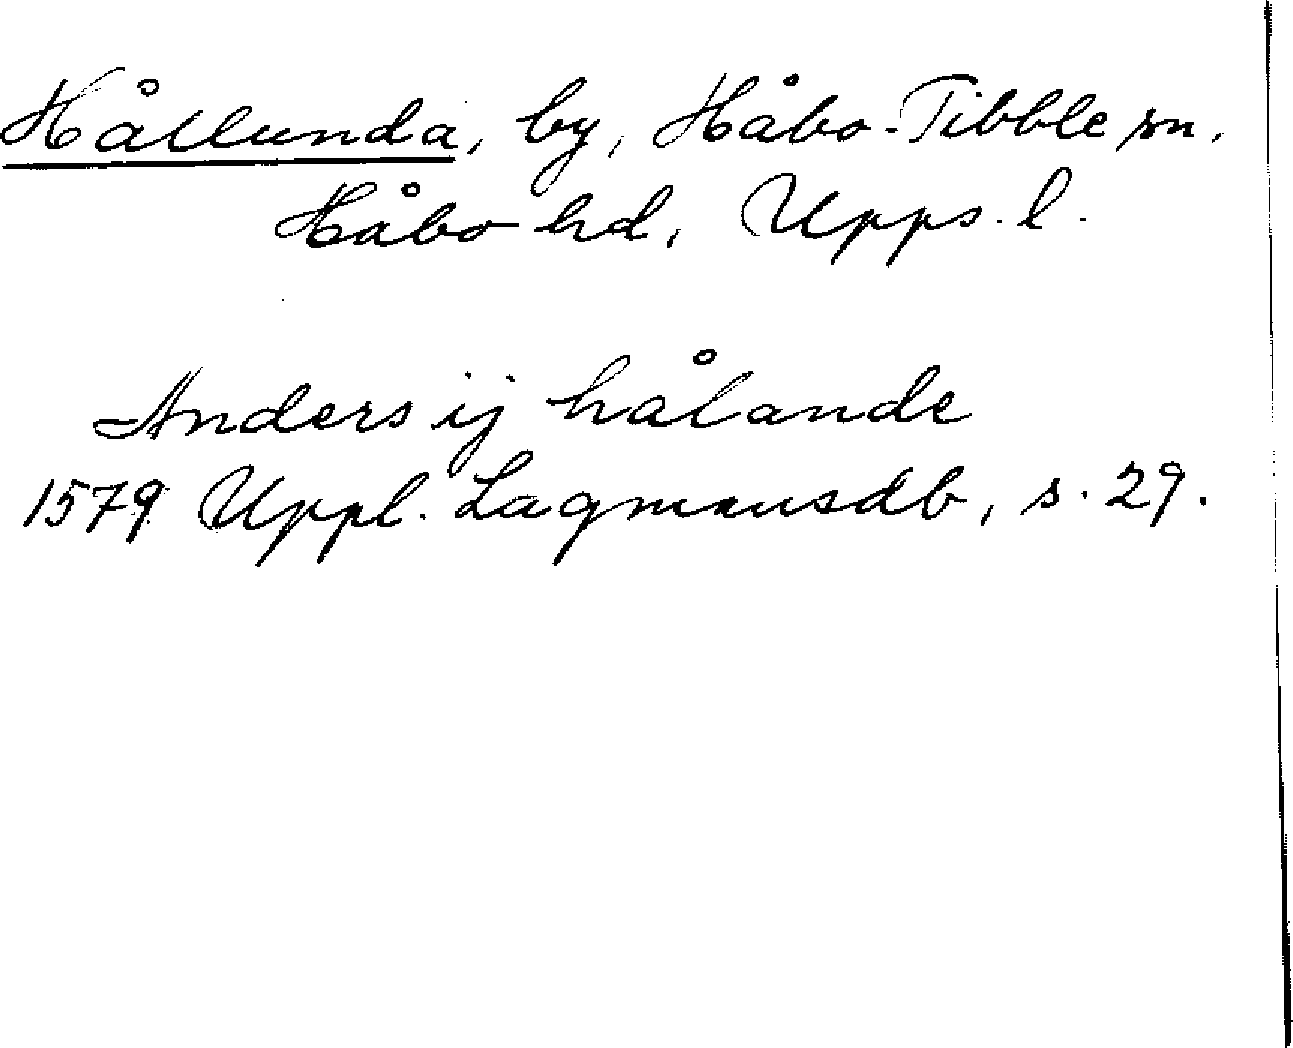 Hållunda, by, Håbo-Tibble sn,
Håbo hd, Upps. l.
Anders ij hålande
1579 Uppl. Lagmansdb, s. 29.